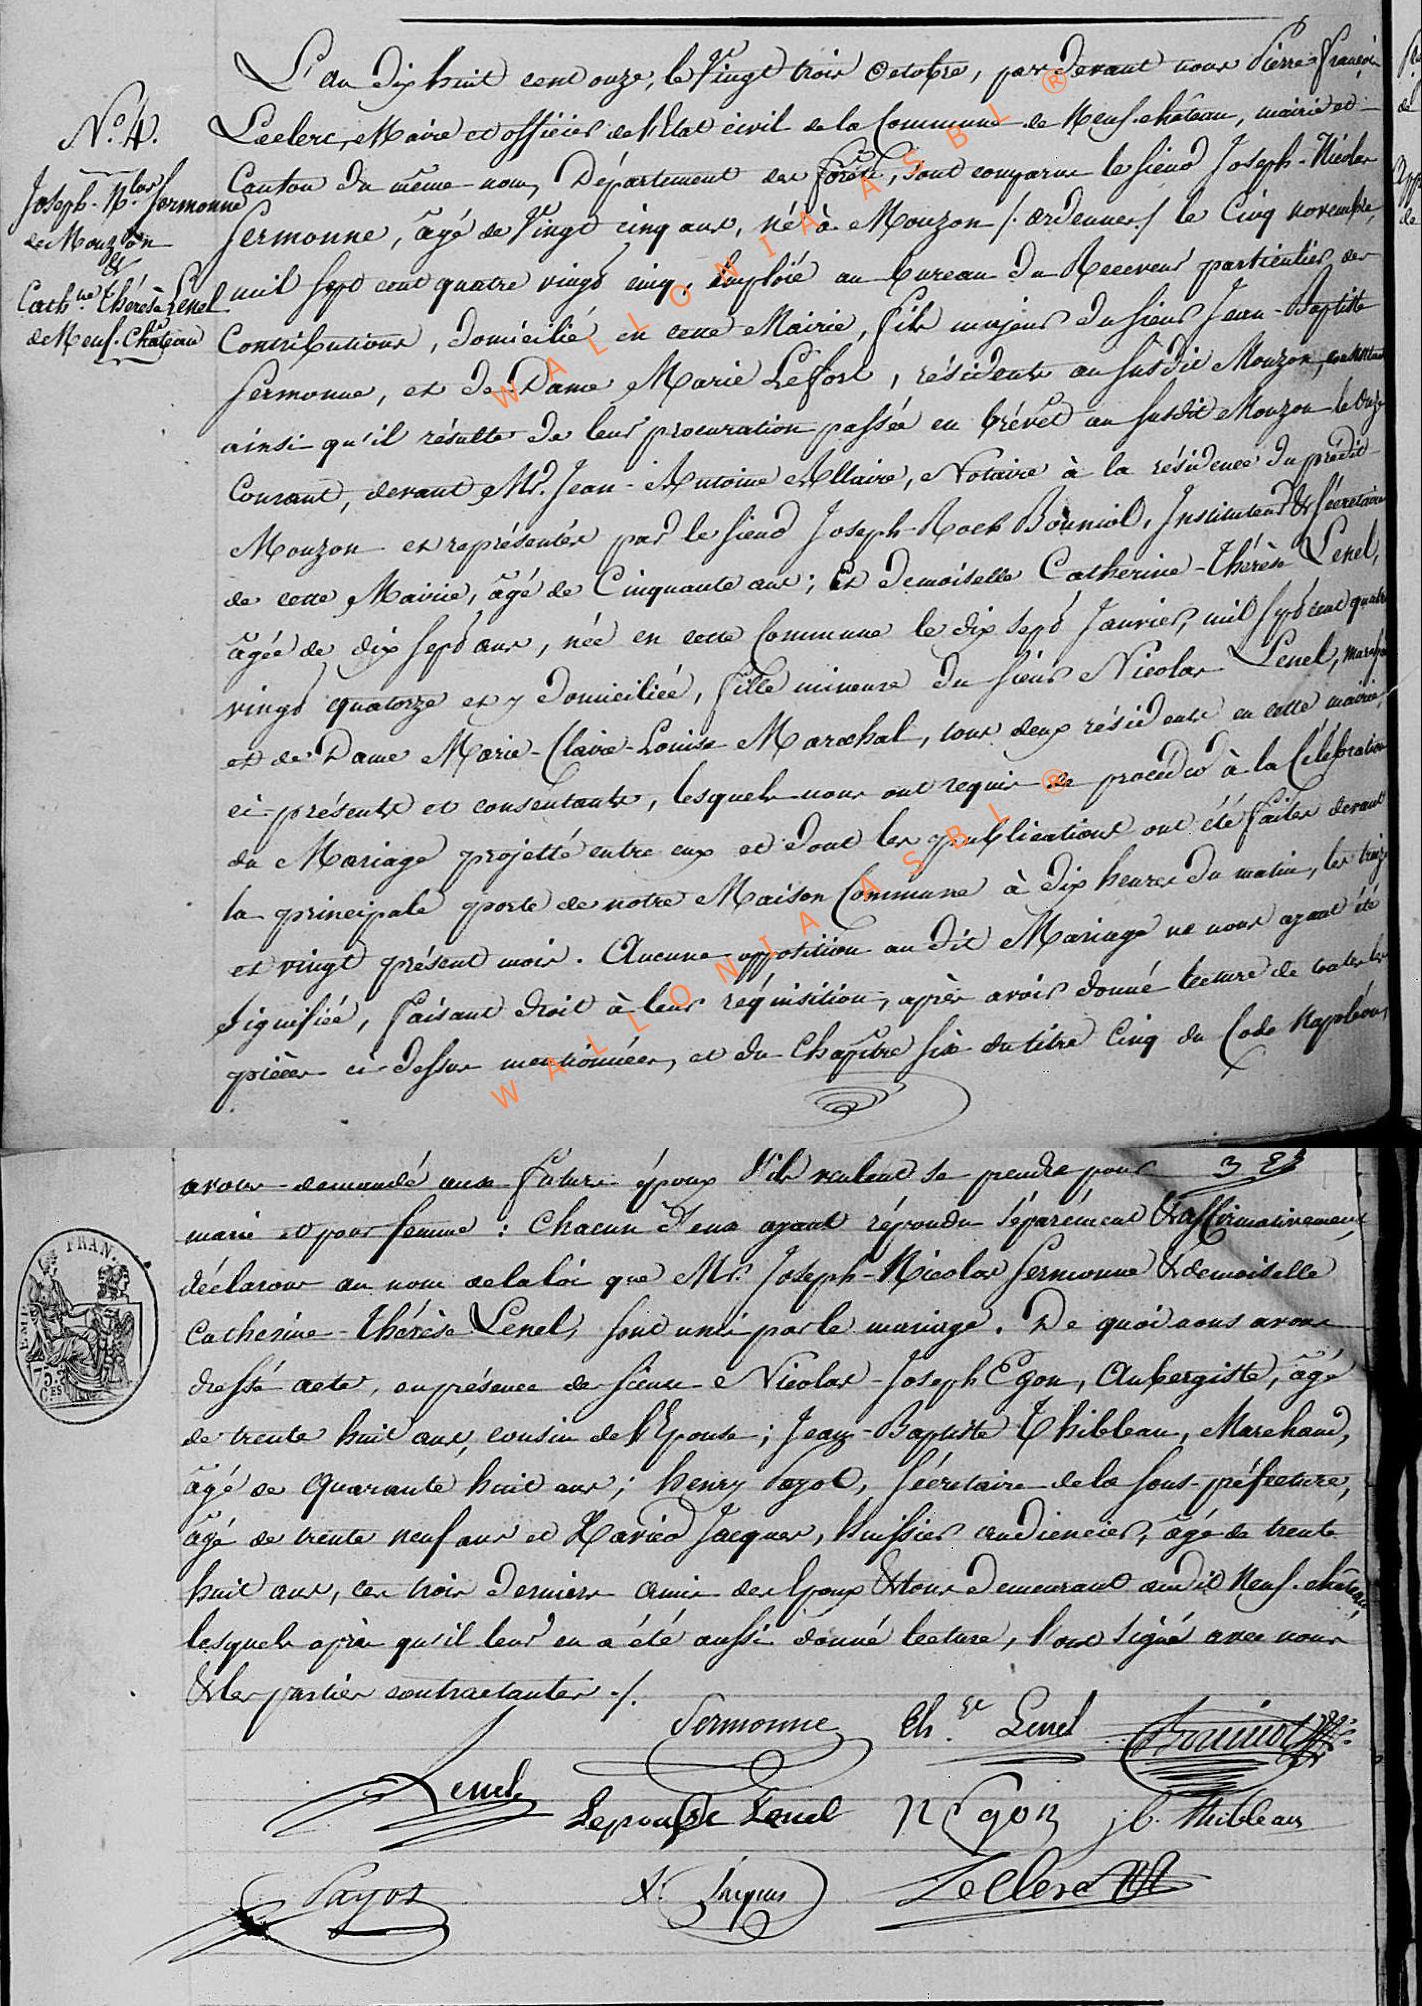 L'an dix huit cent onze, le Vingt trois Octobre, par devant nous Pierre-François
Leclerc, Maire et officier de l'Etat civil de la Commune de Neuf-château, mairie et
Canton du même nom, Département des forêts, sont comparus le sieur Joseph-Nicolas
Sermonne, âgé de Vingt cinq ans, né à Mouzon /:ardennes:/ le Cinq novembre,
mil sept cent quatre vingt cinq, Emploié au bureau du Receveur particulier des
Contributions, domicilié en cette Mairie, fils majeur du sieur Jean-Baptiste
Sermonne, et de Dame Marie Lefort, résidents au susdit Mouzon, consentans
ainsi qu'il résulte de leur procuration passée en brévet au susdit Mouzon le onze
Courant, devant Mr. Jean-Antoine Allaire, Notaire à la résidence du prédit
Mouzon et représentés par le sieur Joseph-Roch Bouniol, Instituteur & Sécretaire
de cette Mairie, âgé de Cinquante ans; Et demoiselle Catherine-Thérèse Lenel,
âgée de dix sept ans, née en cette Commune le dix sept Janvier, mil sept cent quatre
vingt quatorze et y domiciliée, fille mineure du sieur Nicolas Lenel,
et de Dame Marie-Claire-Louise Marechal, tous deux résidents en cette mairie,
ci-présents et consentants, lesquels nous ont requis de procéder à la Célébration
du Mariage projetté entre eux et dont les publications ont été faites devant
la principale porte de notre Maison Commune à dix heures du matin, les treize
et vingt présent mois. Aucune opposition au dit Mariage ne nous ayant été
signifiée, faisant droit à leur réquisition, après avoir donné lecture de toutes les
pièces ci-dessus mentionnées, et du Chapître six du titre Cinq du Code Napoléon,
N.º 4.
Joseph-N.las Sermonne
de Mouzon
&
Cath.ne Thérèse Lenel
de Neuf-Château
WALLONIA ASBL ®
WALLONIA ASBL ®
avons demandé aux futurs époux s'ils veulent se prendre pour
mari et pour femme: Chacun d'eux ayant répondu séparément & affirmativement,
déclarons au nom de la loi que Mr. Joseph-Nicolas Sermonne & demoiselle
Catherine-Thérèse Lenel, sont unis par le mariage. De quoi nous avons
dressé acte, en présence des sieurs Nicolas-Joseph Egon, Aubergiste, âgé
de trente huit ans, cousin de l'Epouse; Jean-Baptiste Thibleau, Marchand,
âgé de Quarante huit ans; henry Payot, Sécretaire de la Sous-préfecture,
âgé de trente neuf ans et Xavier Jacques, huissier audiencier, âgé de trente
huit ans, ces trois derniers amis des Epoux & tous demeurant audit Neuf-château,
lesquels après qu'il leur en a été aussi donné lecture, l'ont signé avec nous
& les parties contractantes ./.
Sermonne Th.se Lenel Bouniol
Lenel
Lepouse Lenel N Egon jb. thibleau
Payot X. Jacques Leclerc
FRAN.
EMP.
75.
C.ES